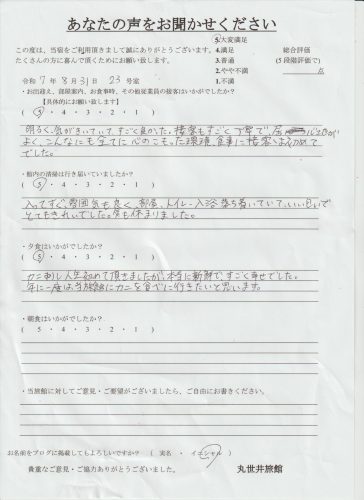 あなたの声をお聞かせください
この度は、当宿をご利用頂きまして誠にありがとうございます。
たくさんの方に喜んで頂くためにお願い致します。
5.大変満足
4.満足
3.普通
2.やや不満
1.不満
総合評価
(5段階評価で)
点
令和 7 年 8 月 31 日 23 号室
・お出迎え、部屋案内、お食事時、その他従業員の接客はいかがでしたか?
【具体的にお願い致します】
( 5 ・ 4 ・ 3 ・ 2 ・ 1 )
明るく、気がきいていて、すごく良かった。接客もすごく丁寧で、居心地が
よく、こんなにも全てに心のこもった環境、食事に接客は初めて
でした。
・館内の清掃は行き届いていましたか?
( 5 ・ 4 ・ 3 ・ 2 ・ 1 )
入ってすぐ、雰囲気も良く、部屋、トイレ、入浴落ち着いていて、いい匂いで
とてもきれいでした。気も休まりました。
・夕食はいかがでしたか?
( 5 ・ 4 ・ 3 ・ 2 ・ 1 )
カニ刺し人生初めて頂きましたが、本当に新鮮で、すごく幸せでした。
年に一度は当旅館にカニを食べに行きたいと思います。
・朝食はいかがでしたか?
( 5 ・ 4 ・ 3 ・ 2 ・ 1 )
・当旅館に対してご意見・ご要望がございましたら、ご自由にお書きください。
お名前をブログに掲載してもよろしいですか? ( 実名 ・ イニシャル )
貴重なご意見・ご協力ありがとうございました。 丸世井旅館